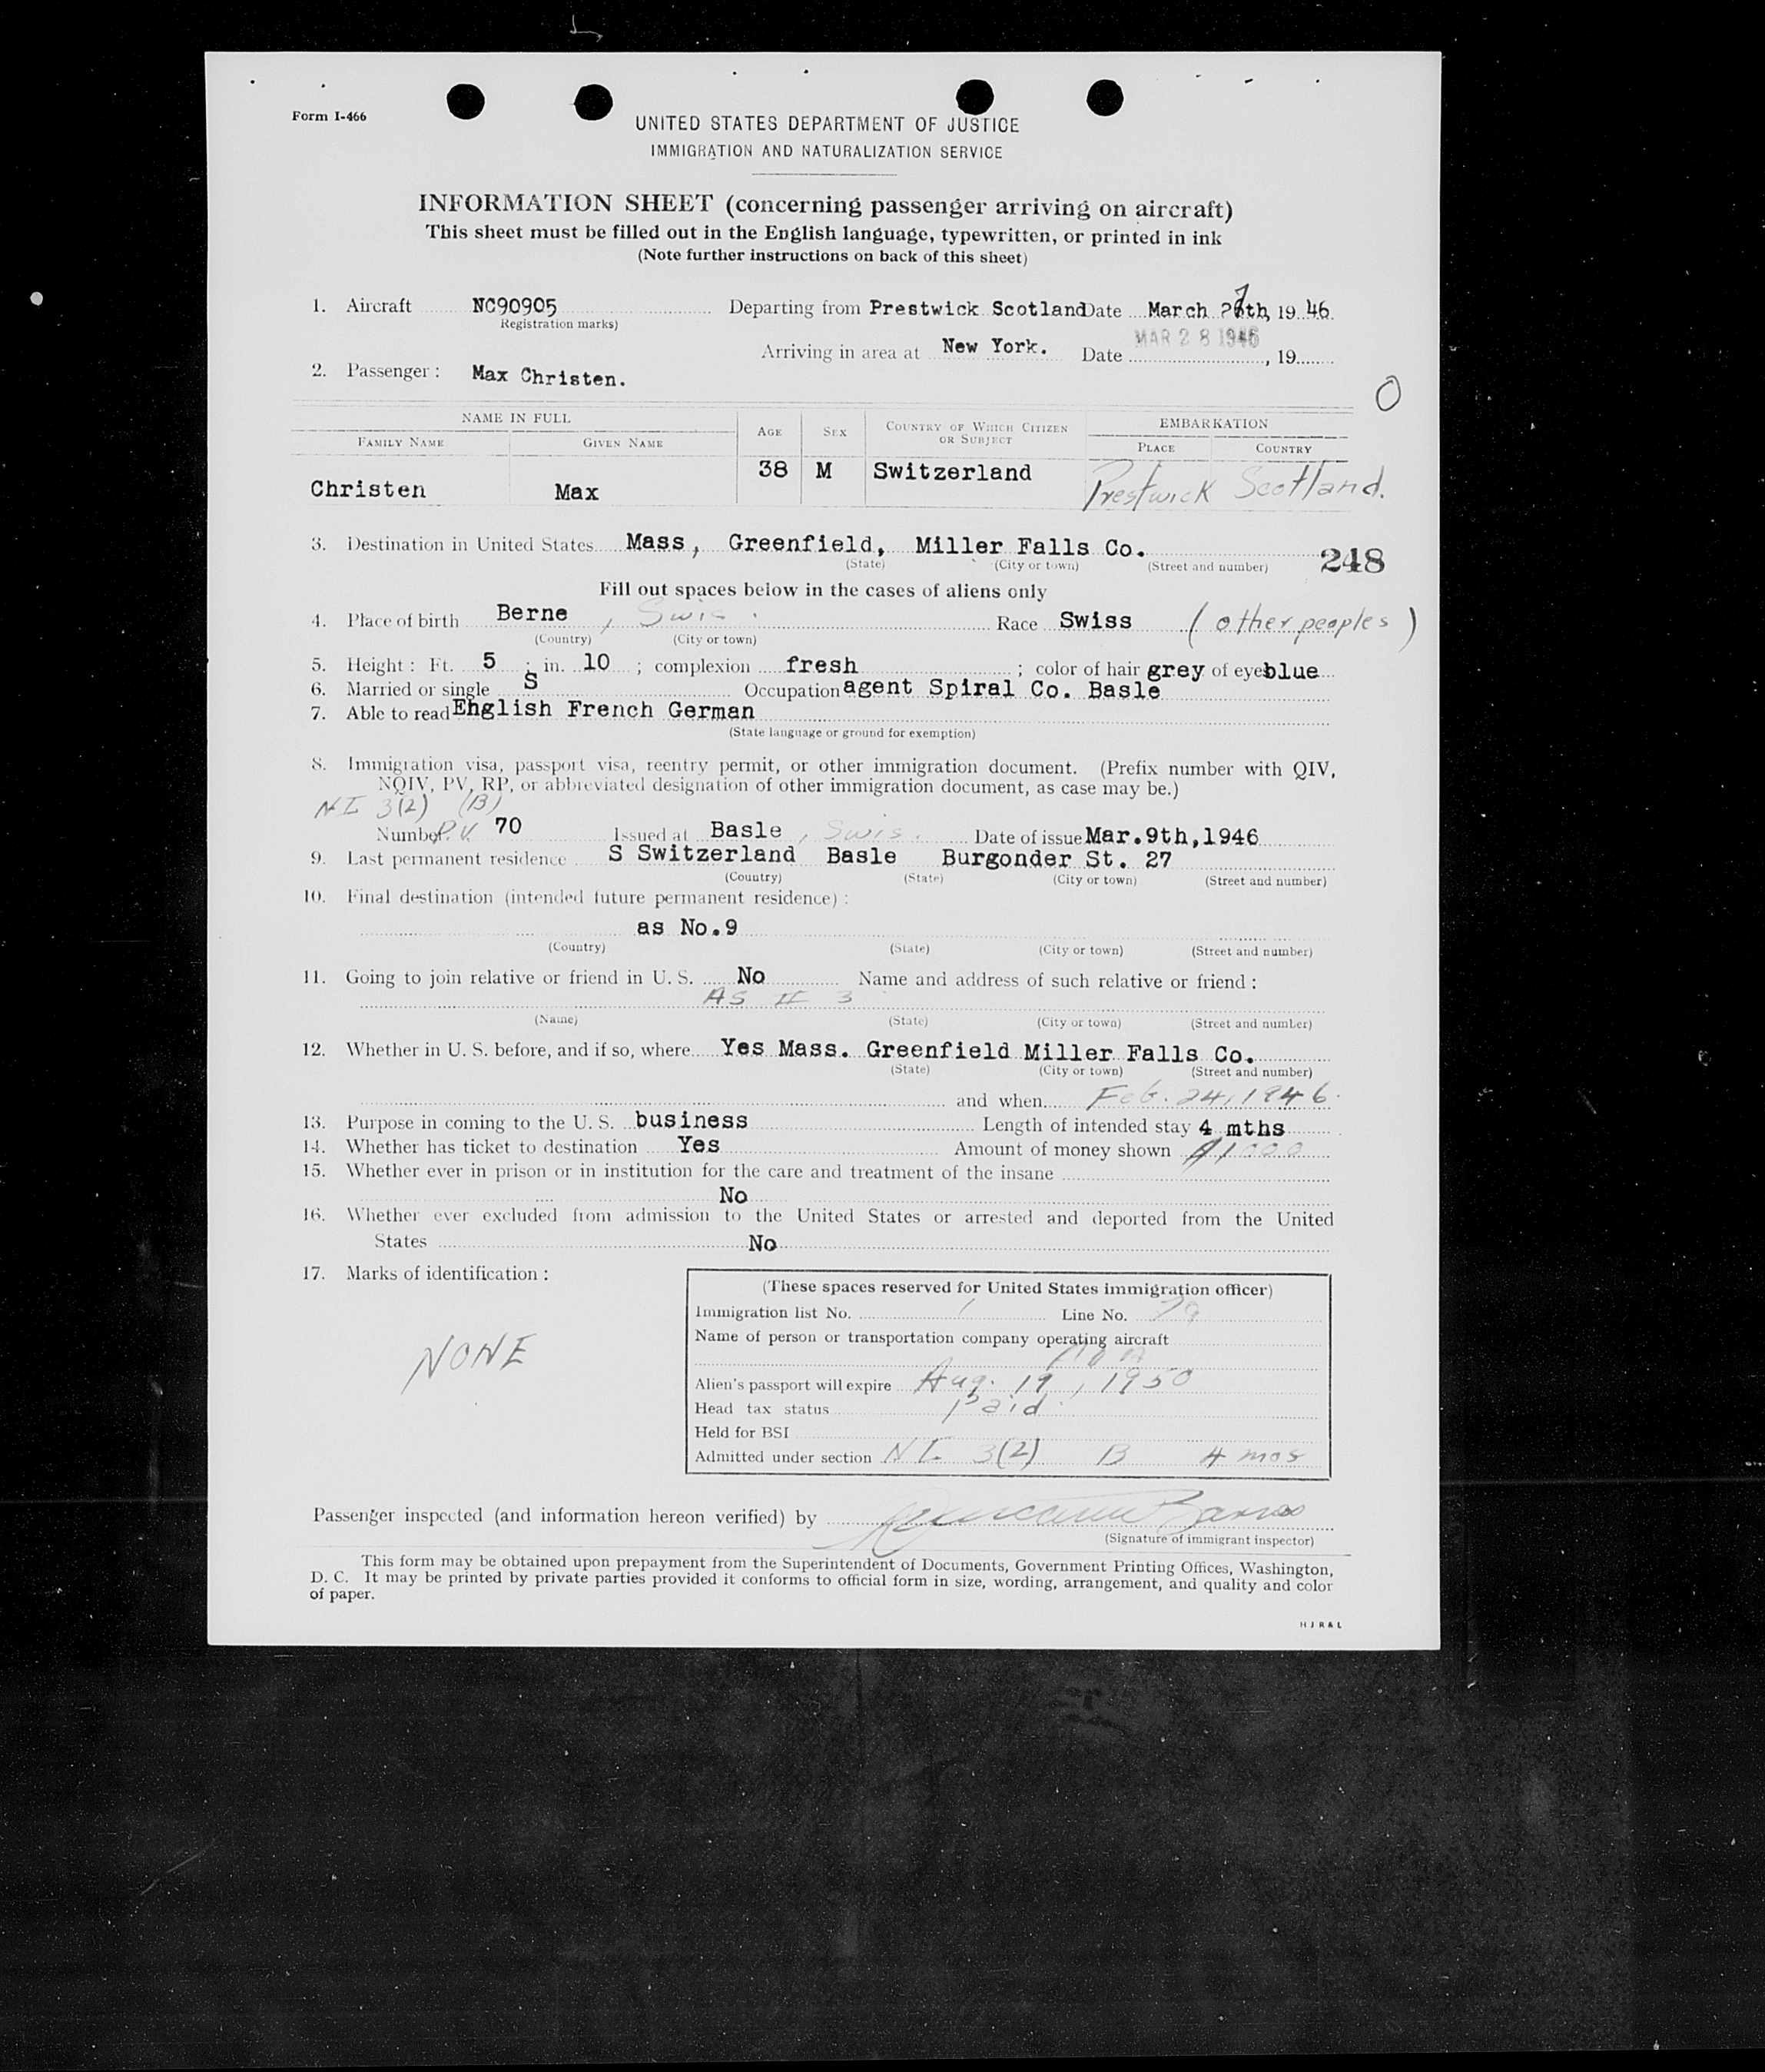 Form I-466
UNITED STATES DEPARTMENT OF JUSTICE
IMMIGRATION AND NATURALIZATION SERVICE
INFORMATION SHEET (concerning passenger arriving on aircraft)
This sheet must be filled out in the English language, typewritten, or printed in ink
(Note further instructions on back of this sheet)
1. Aircraft NC90905 Departing from Prestwick Scotland Date March 27th, 19 46.
Registration marks)
Arriving in area at New York. Date MAR 28 1946, 19
2. Passenger : Max Christen.
O
NAME IN FULL AGE SEX COUNTRY OF WHICH CITIZEN OR SUBJECT EMBARKATION
FAMILY NAME GIVEN NAME PLACE COUNTRY
Christen Max 38 M Switzerland Prestwick Scotland.
3. Destination in United States Mass, Greenfield, Miller Falls Co.
(State) (City or town) (Street and number) 248
Fill out spaces below in the cases of aliens only
4. Place of birth Berne, Swis. Race Swiss (other peoples)
(Country) (City or town)
5. Height : Ft. 5 ; in. 10 ; complexion fresh ; color of hair grey of eyes blue
6. Married or single S Occupation agent Spiral Co. Basle
7. Able to read English French German
(State language or ground for exemption)
8. Immigration visa, passport visa, reentry permit, or other immigration document. (Prefix number with QIV,
NQIV, PV, RP, or abbreviated designation of other immigration document, as case may be.)
NI 3(2) (B)
Number P.V. 70 Issued at Basle, Swis. Date of issue Mar.9th,1946
9. Last permanent residence S Switzerland Basle Burgonder St. 27
(Country) (State) (City or town) (Street and number)
10. Final destination (intended future permanent residence) :
as No.9
(Country) (State) (City or town) (Street and number)
11. Going to join relative or friend in U. S. No Name and address of such relative or friend :
AS # 3
(Name) (State) (City or town) (Street and number)
12. Whether in U. S. before, and if so, where Yes Mass. Greenfield Miller Falls Co.
(State) (City or town) (Street and number)
and when Feb. 24, 1946.
13. Purpose in coming to the U. S. business Length of intended stay 4 mths
14. Whether has ticket to destination Yes Amount of money shown $1000
15. Whether ever in prison or in institution for the care and treatment of the insane
No
16. Whether ever excluded from admission to the United States or arrested and deported from the United
States No
17. Marks of identification :
NONE
(These spaces reserved for United States immigration officer)
Immigration list No. 1 Line No. 29
Name of person or transportation company operating aircraft
Alien's passport will expire Aug. 19, 1950
Head tax status Paid
Held for BSI
Admitted under section NI. 3(2) B 4 mos
Passenger inspected (and information hereon verified) by
(Signature of immigrant inspector)
This form may be obtained upon prepayment from the Superintendent of Documents, Government Printing Offices, Washington,
D. C. It may be printed by private parties provided it conforms to official form in size, wording, arrangement, and quality and color
of paper.
H J R & L